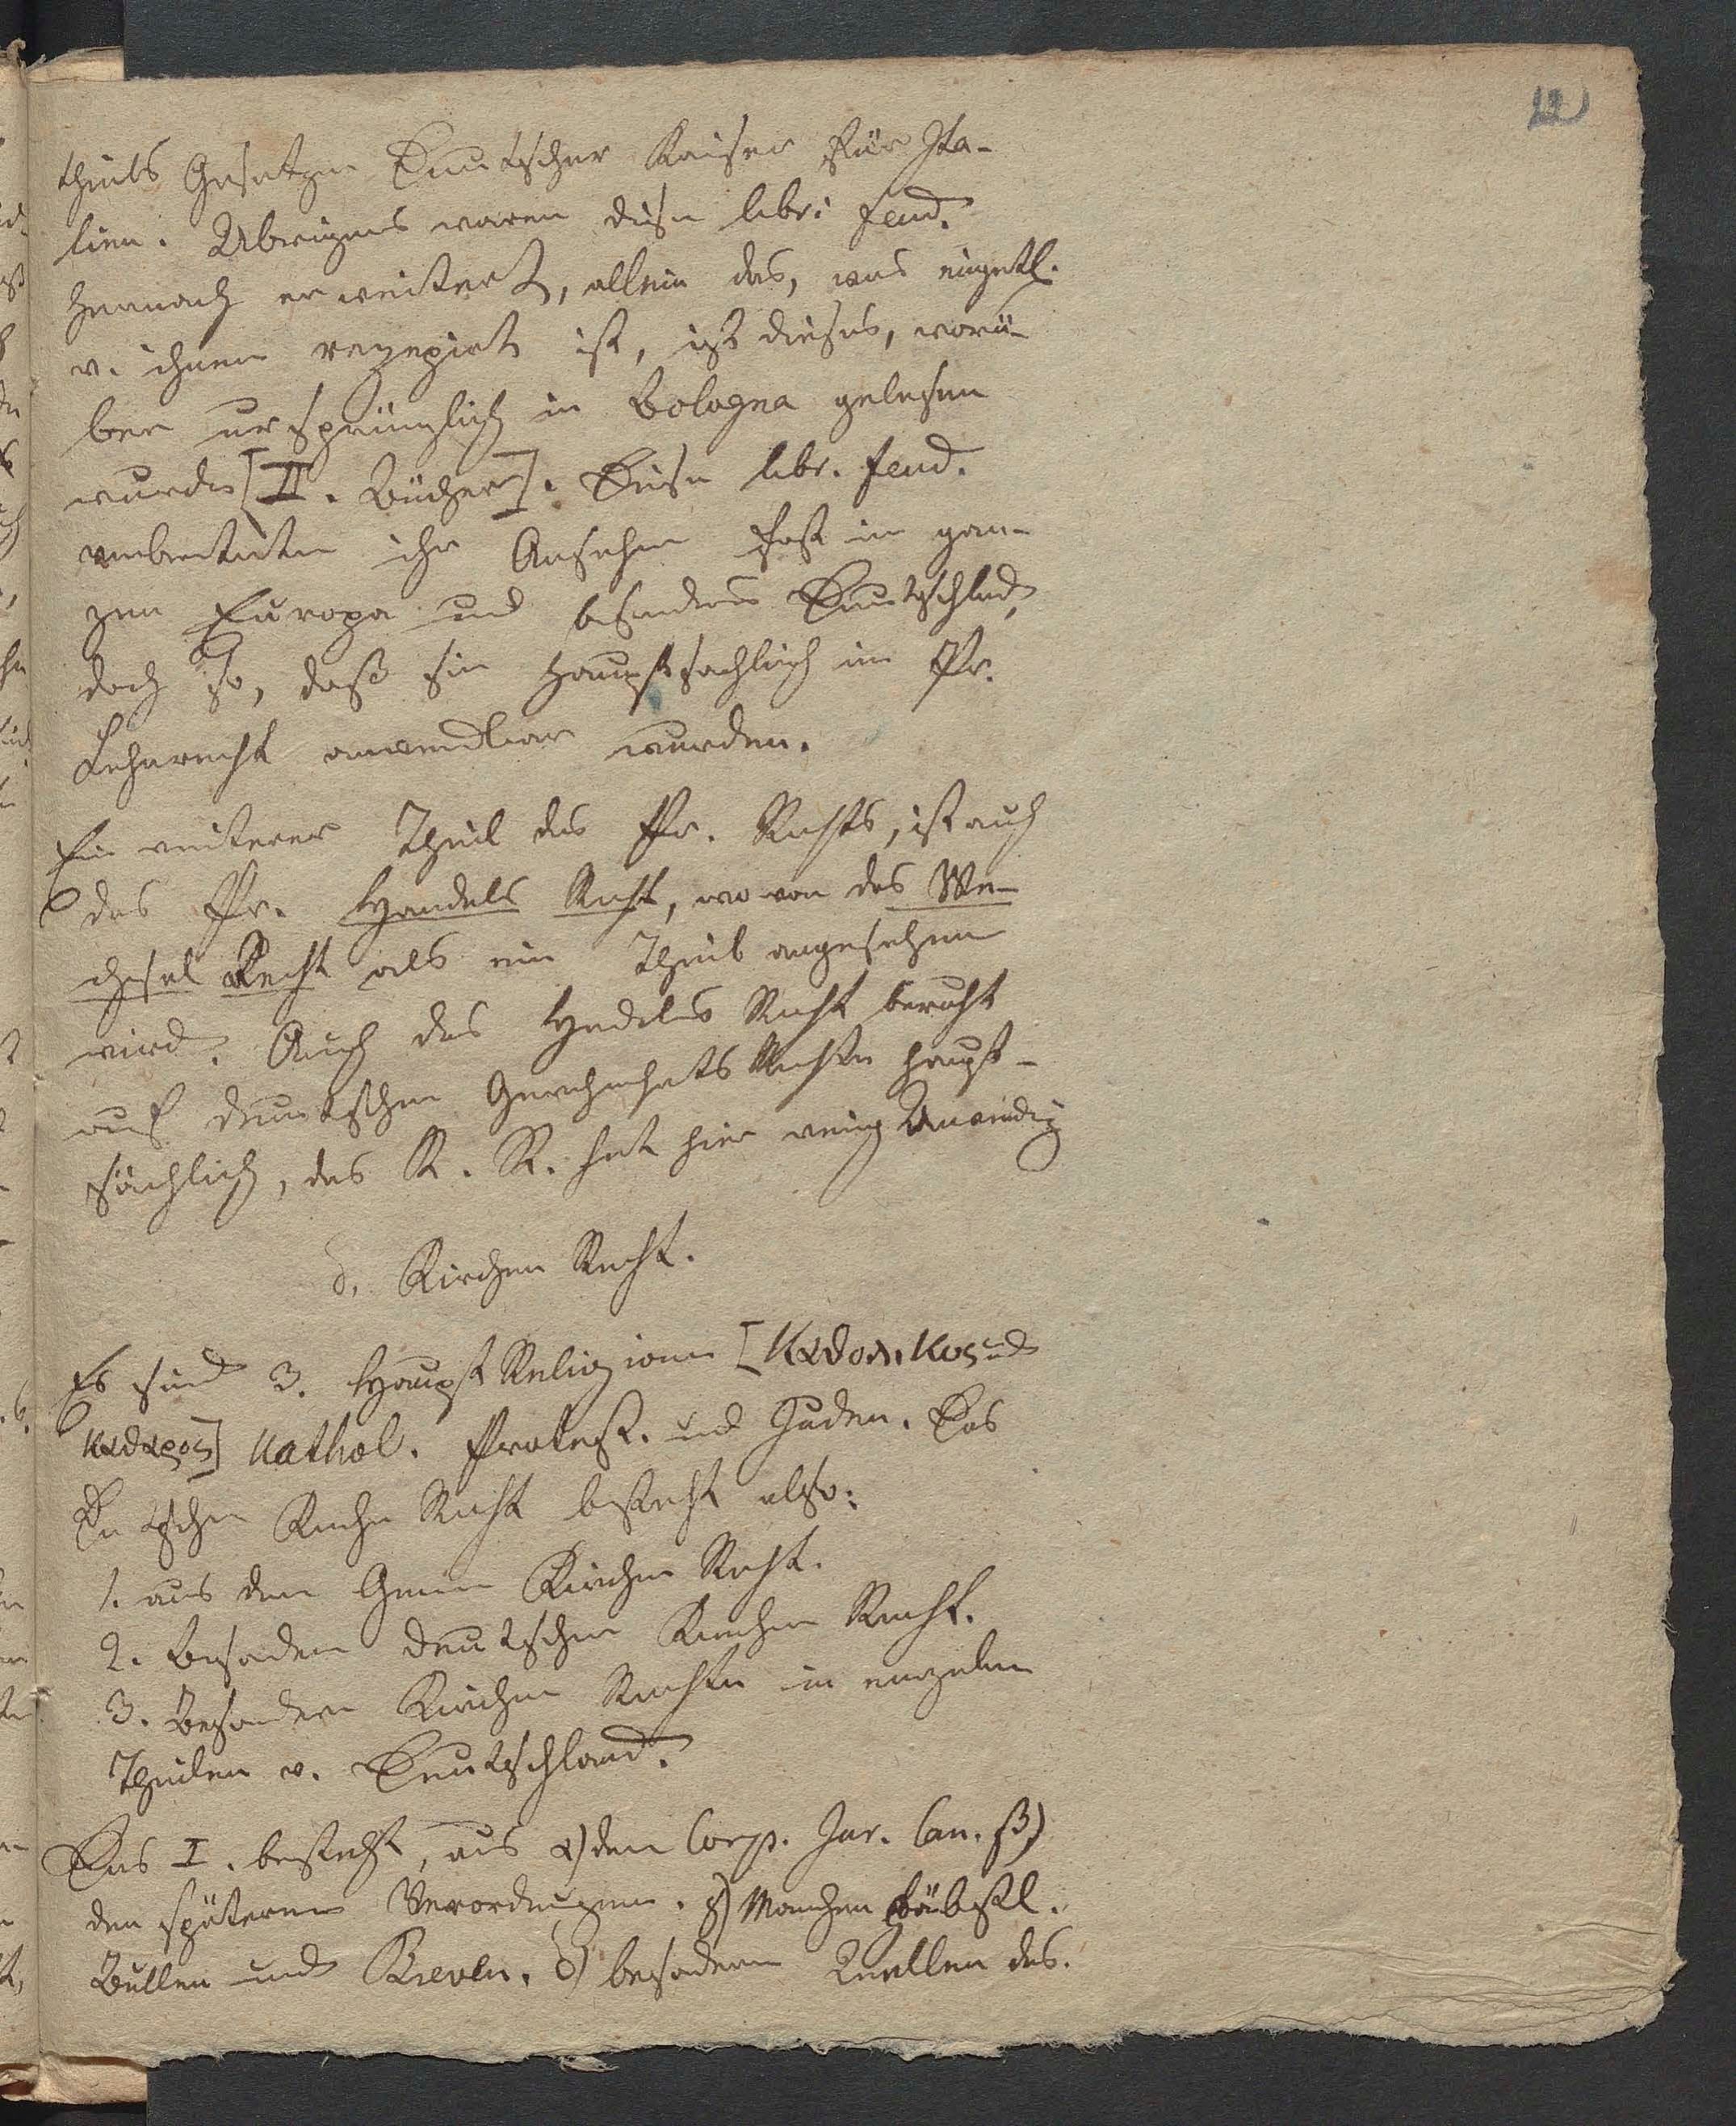 12
theils Gesetzen Deutscher Kaiser für Ita-
lien. Übrigens waren diese libri feud.
hernach erweitert, allein das, was eigentl.
v. ihnen rezepirt ist, ist dieses, worü-
ber ursprünglich in Bologna gelesen
wurde [II. Bücher]. Diese libr. feud.
verbreiteten ihr Ansehen fast in gan-
zen Europa und besonders Deutschland,
doch so, daß sie hauptsächlich im Pr.
Lehnrecht anwendbar wurden.
Ein weiterer Theil des Pr. Rechts, ist auch
das Pr. Handels Recht, wovon das We-
chsel Recht als ein Theil angesehen
wird. Auch das Handels Recht beruht
auf deutschen Gewohnheits Rechten haupt-
sächlich, das R. R. hat hier wenig
d. Kirchen Recht.
Es sind 3. Haupt Religionen [καθολικος und
καθαρος] Kathol. Protest. und Juden. Das
Deutsche Kirchen Recht besteht also:
1. aus dem Gemeinen Kirchen Recht.
2. Besondern deutschen Kirchen Recht.
3. Besondern Kirchen Rechten in einzelnen
Theilen v. Deutschland.
Das I. besteht, aus α) dem Corp. Jur. Can. β)
den späteren Verordnungen. γ) Manchen Päbstl.
Bullen und Breven. δ) besondern Quellen des.